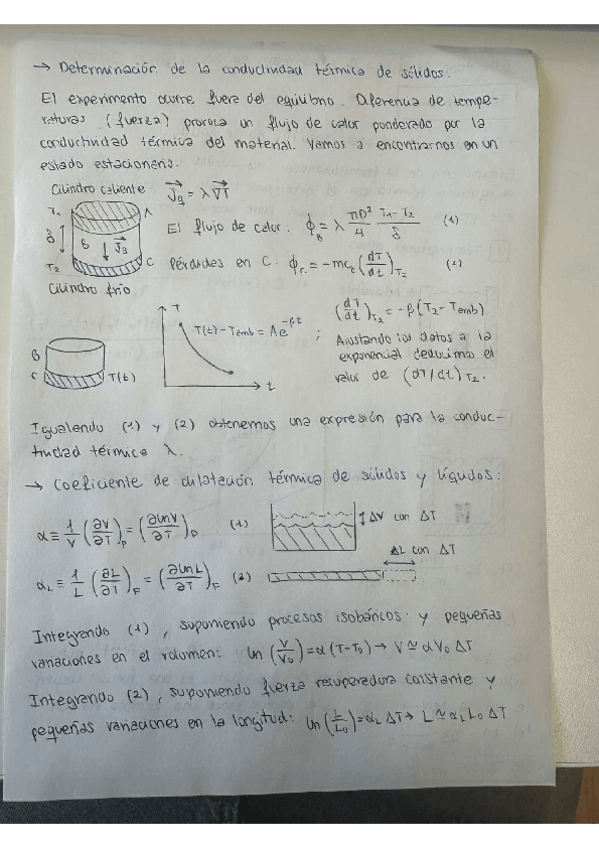 → Determinación de la conductividad térmica de sólidos:
El experimento ocurre fuera del equilibrio. Diferencia de tempe-
raturas (fuerza) provoca un flujo de calor ponderado por la
conductividad térmica del material. Vamos a encontrarnos en un
estado estacionario.
Cilindro caliente J⃗q = λ∇⃗T
T₁ A
δ B J⃗q
T₂ C
El flujo de calor: ϕ_B = λ πD²/4 (T₁-T₂)/δ (1)
Pérdidas en C: ϕ_c = -mc_c (dT/dt)_T₂ (2)
Cilindro frío
T
T(t)-Tamb = Ae^-βt ;
t
B
C T(t)
(dT/dt)_T₂ = -β(T₂-Tamb)
Ajustando los datos a la
exponencial deducimos el
valor de (dT/dt)_T₂.
Igualando (1) y (2) obtenemos una expresión para la conduc-
tividad térmica λ.
→ Coeficiente de dilatación térmica de sólidos y líquidos:
α ≡ 1/V (∂V/∂T)_P = (∂lnV/∂T)_P (1)
↕ΔV con ΔT
ΔL con ΔT
α_L ≡ 1/L (∂L/∂T)_F = (∂lnL/∂T)_F (2)
Integrando (1), suponiendo procesos isobáricos y pequeñas
variaciones en el volumen: ln(V/V₀) = α(T-T₀) → V ≃ αV₀ΔT
Integrando (2), suponiendo fuerza recuperadora constante y
pequeñas variaciones en la longitud: ln(L/L₀) = α_L ΔT → L ≃ α_L L₀ ΔT